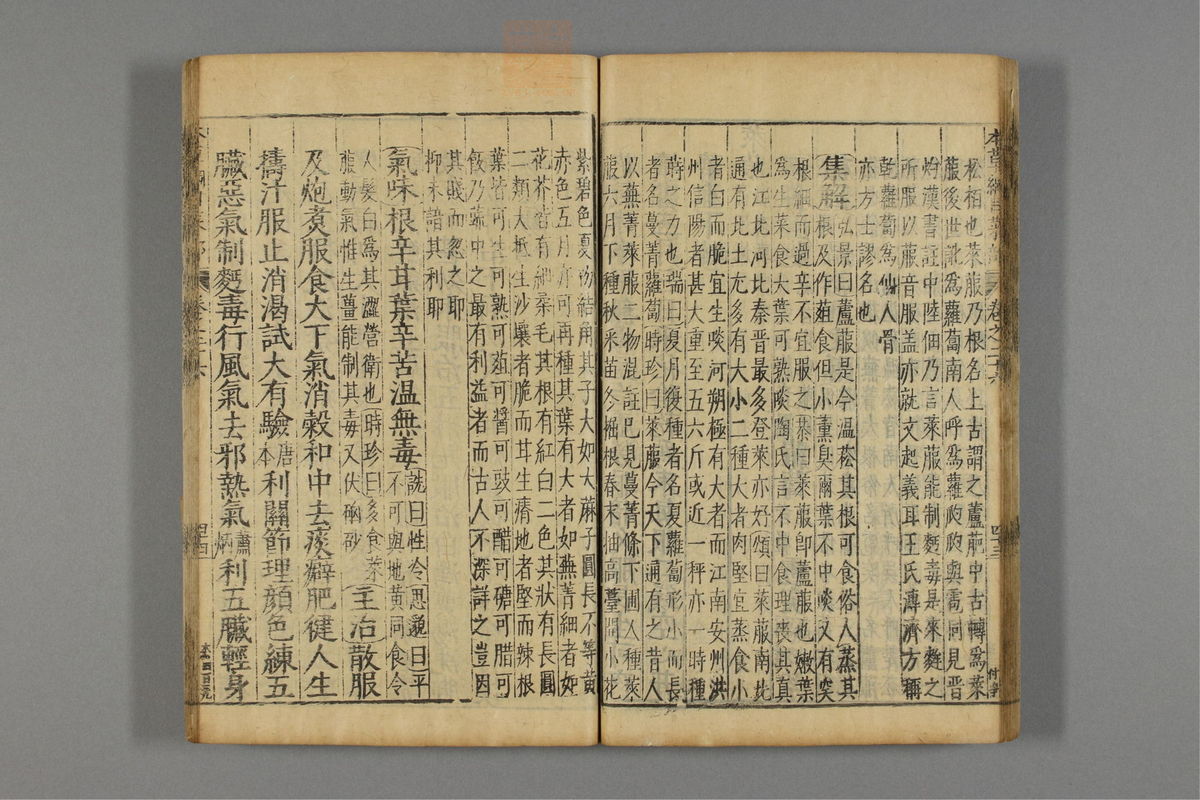 松相也萊菔乃根名上古謂之蘆萉中古轉爲萊
菔後世訛爲蘿蔔南人呼爲蘿瓝瓝與雹同見晋
灼漢書註中陸佃乃言萊菔能制麫毒是來麰之
所服以菔音服盖亦就文起義耳王氏濟濟方稱
乾蘿蔔爲仙人骨
亦方士謬名也
集解弘景曰蘆菔是今温菘其根可食俗人蒸其
根及作葅食但小薰臭爾葉不中啖又有突
根細而過辛不宜服之恭曰萊菔卽蘆菔也嫩葉
爲生菜食大葉可熟啖陶氏言不中食理喪其真
也江北河北秦晋最多登萊亦好頌曰萊菔南北
通有北土尤多有大小二種大者肉堅宜蒸食小
者白而脆宜生啖河朔極有大者而江南安州洪
州信陽者甚大重至五六斤或近一秤亦一時種
蒔之力也瑞曰夏月復種者名夏蘿蔔形小而長
者名蔓菁蘿蔔時珍曰萊菔今天下通有之昔人
以蕪菁萊菔二物混註已見蔓菁條下圃人種萊
菔六月下種秋采苗冬掘根春末抽高薹開小花
紫碧色夏初結角其子大如大麻子圓長不等黄
赤色五月亦可再種其葉有大者如蕪菁細者如
花芥皆有細柔毛其根有紅白二色其狀有長圓
二類大抵生沙壤者脆而甘生瘠地者堅而辣根
葉皆可生可熟可葅可醬可豉可醋可糖可腊可
飯乃蔬中之最有利益者而古人不深詳之豈因
其賤而忽之耶
抑未諳其利耶
氣味根辛甘葉辛苦温無毒詵曰性冷思邈曰平
不可與地黄同食令
人髮白爲其澀營衛也時珍曰多食萊
菔動氣惟生薑能制其毒又伏硇砂
主治散服
及炮煮服食大下氣消穀和中去痰癖肥健人生
擣汁服止消渴試大有驗唐本利關節理顔色練五
臟惡氣制麪毒行風氣去邪熱氣蕭炳利五臟輕身
卷之二十六
四十三
四十四